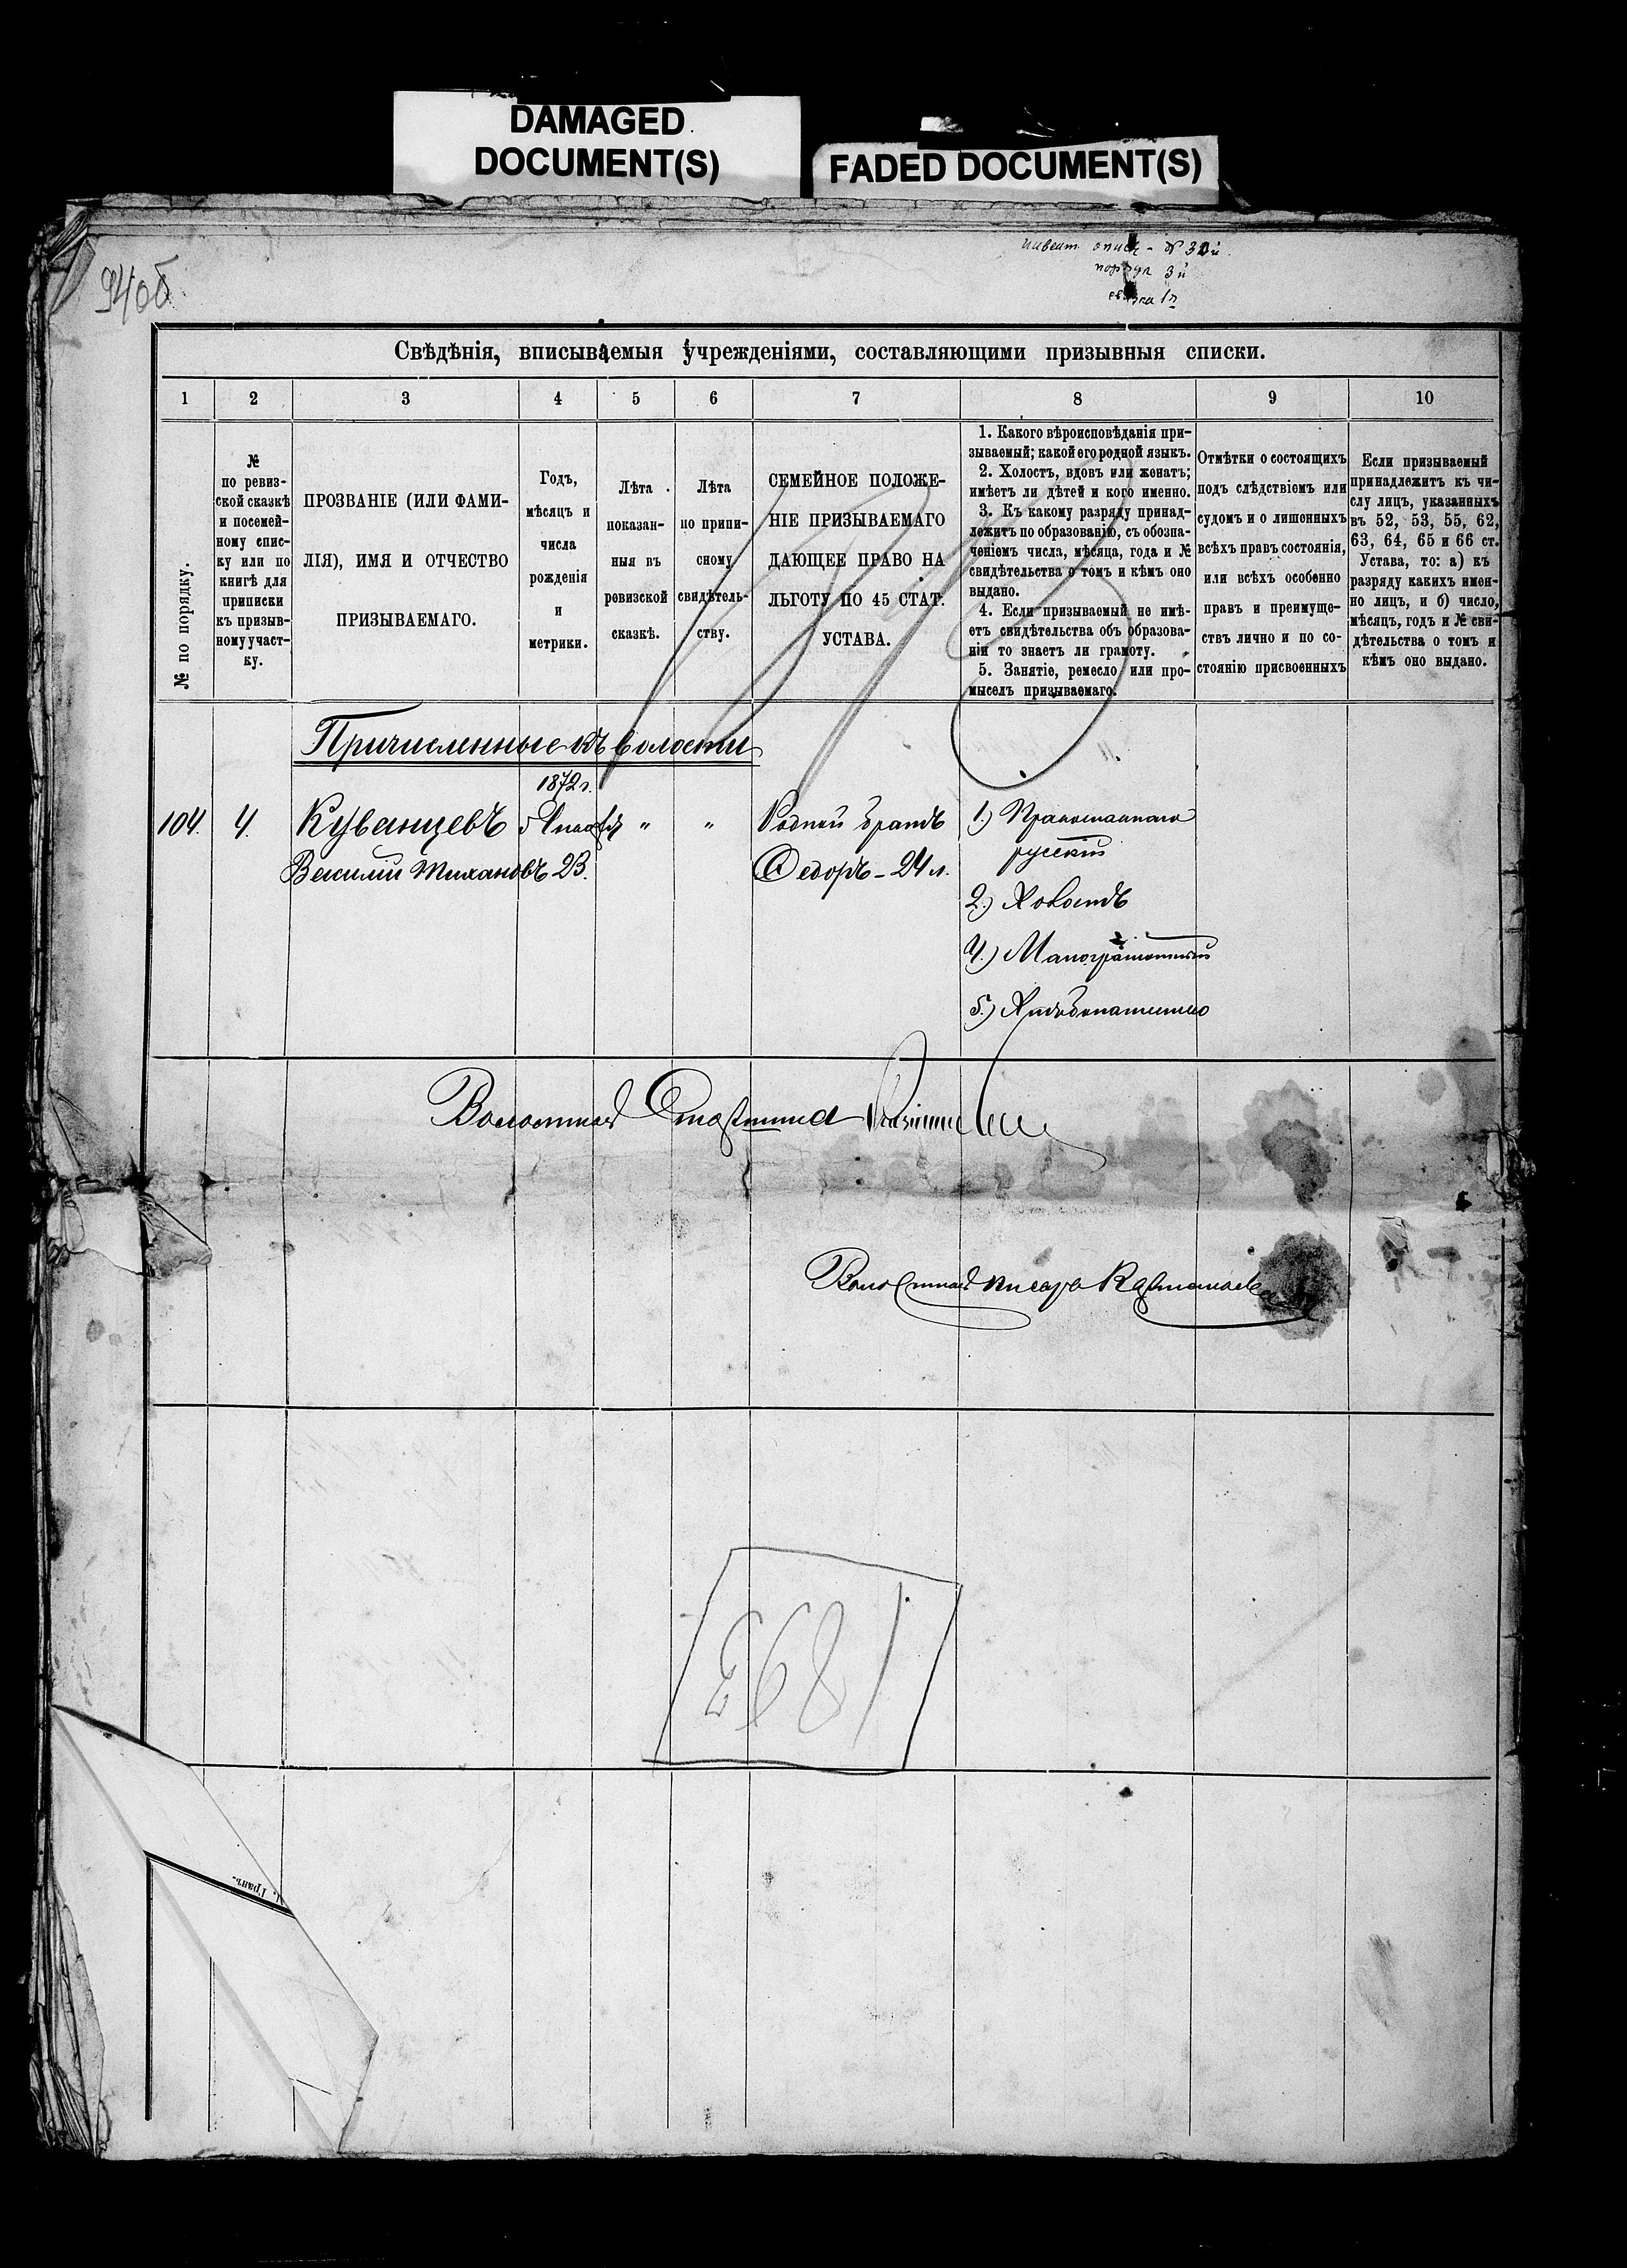 DAMAGED
DOCUMENT(S)
FADED DOCUMENT(S)
940б
3й
связка 1я
Свѣдѣнія, вписываемыя учрежденіями, составляющими призывныя списки.
1 2 3 4 5 6 7 8 9 10
№ по порядку.
№
по ревиз-
ской сказкѣ
и посемей-
ному спис-
ку или по
книгѣ для
приписки
къ призыв-
ному участ-
ку.
ПРОЗВАНІЕ (ИЛИ ФАМИ-
ЛІЯ), ИМЯ И ОТЧЕСТВО
ПРИЗЫВАЕМАГО.
Годъ,
мѣсяцъ и
числа
рожденія
и
метрики.
Лѣта
показан-
ныя въ
ревизской
сказкѣ.
Лѣта
по припи-
сному
свидѣтель-
ству.
СЕМЕЙНОЕ ПОЛОЖЕ-
НІЕ ПРИЗЫВАЕМАГО
ДАЮЩЕЕ ПРАВО НА
ЛЬГОТУ ПО 45 СТАТ.
УСТАВА.
1. Какого вѣроисповѣданія при-
зываемый; какой его родной языкъ.
2. Холостъ, вдовъ или женатъ;
имѣетъ ли дѣтей и кого именно.
3. Къ какому разряду принад-
лежитъ по образованію, съ обозна-
ченіемъ числа, мѣсяца, года и №
свидѣтельства о томъ и кѣмъ оно
выдано.
4. Если призываемый не имѣ-
етъ свидѣтельства объ образова-
ніи то знаетъ ли грамоту.
5. Занятіе, ремесло или про-
мыселъ призываемаго.
Отмѣтки о состоящихъ
подъ слѣдствіемъ или
судомъ и о лишенныхъ
всѣхъ правъ состоянія,
или всѣхъ особенно
правъ и преимуще-
ствъ лично и по со-
стоянію присвоенныхъ
Если призываемый
принадлежитъ къ чи-
слу лицъ, указанныхъ
въ 52, 53, 55, 62,
63, 64, 65 и 66 ст.
Устава, то: а) къ
разряду какихъ имен-
но лицъ, и б) число,
мѣсяцъ, годъ и № сви-
дѣтельства о томъ и
кѣмъ оно выдано.
1893
Причисленные къ волости
1872 г.
104. 4. Куванцевъ 5 " " Родной братъ 1.) Православнаго
Василий 23. Федоръ – 24 л. русскій
2.) Холостъ
4.) Малограмотный
5.) Хлѣбопашество
Волостной Старшина
Волостной писарь
1893